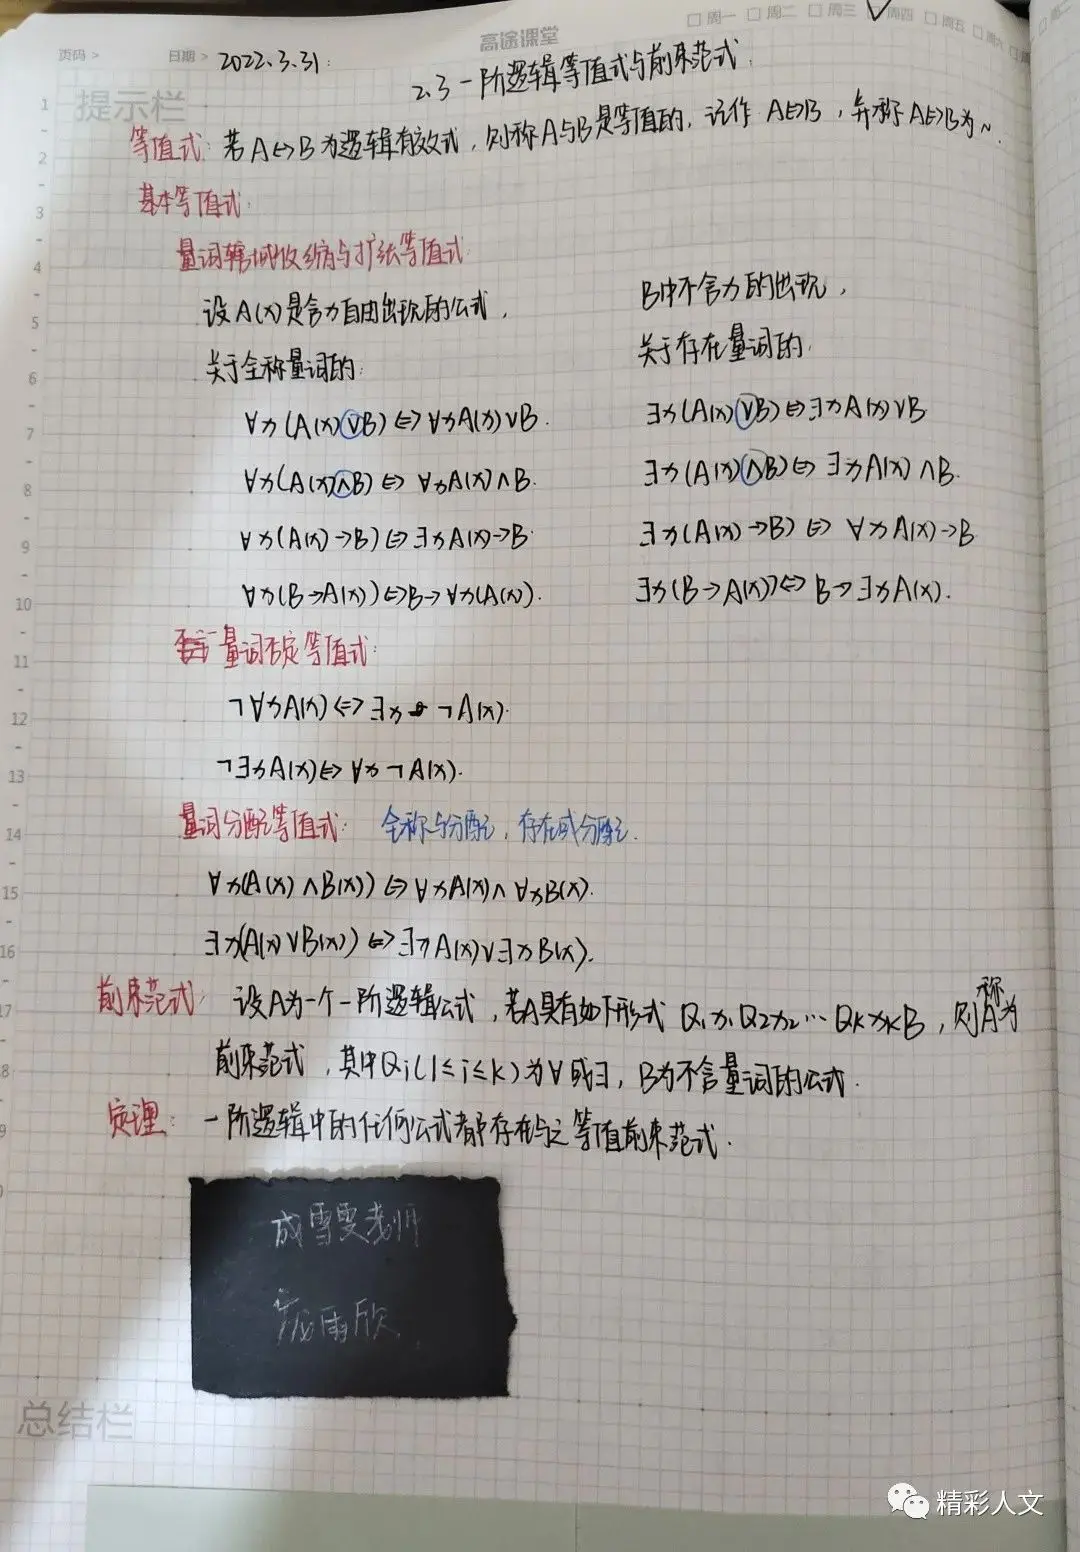 □周一 □周二 □周三 □周四 □周五 □周六
高途课堂
页码 > 日期 > 2022.3.31.
2.3 一阶逻辑等值式与前束范式.
提示栏
等值式: 若A↔B为逻辑有效式, 则称A与B是等值的, 记作 A⇔B, 并称A⇔B为~.
基本等值式:
量词辖域收缩与扩张等值式:
设A(x)是含x自由出现的公式, B中不含x的出现,
关于全称量词的: 关于存在量词的:
∀x(A(x)∨B)⇔∀xA(x)∨B. ∃x(A(x)∨B)⇔∃xA(x)∨B
∀x(A(x)∧B)⇔∀xA(x)∧B. ∃x(A(x)∧B)⇔∃xA(x)∧B.
∀x(A(x)→B)⇔∃xA(x)→B. ∃x(A(x)→B)⇔∀xA(x)→B
∀x(B→A(x))⇔B→∀x(A(x). ∃x(B→A(x))⇔B→∃xA(x).
量词否定等值式:
¬∀xA(x)⇔∃x¬A(x).
¬∃xA(x)⇔∀x¬A(x).
量词分配等值式: 全称与分配, 存在或分配.
∀x(A(x)∧B(x))⇔∀xA(x)∧∀xB(x).
∃x(A(x)∨B(x))⇔∃xA(x)∨∃xB(x).
前束范式: 设A为一个一阶逻辑公式, 若A具有如下形式 Q₁x₁Q₂x₂…QₖxₖB, 则称A为
前束范式, 其中Qi(1≤i≤k)为∀或∃, B为不含量词的公式.
定理: 一阶逻辑中的任何公式都存在与之等值前束范式.
成雪雯老师
庞雨欣
总结栏
精彩人文